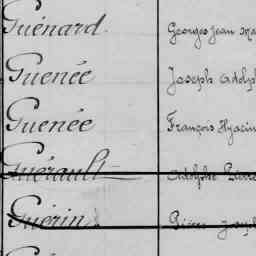 Guénard. Georges Jean
Guenée Joseph Adolp
Guenée François Hyacin
Guérault Adolphe Pierre
Guérin Pierre Josep